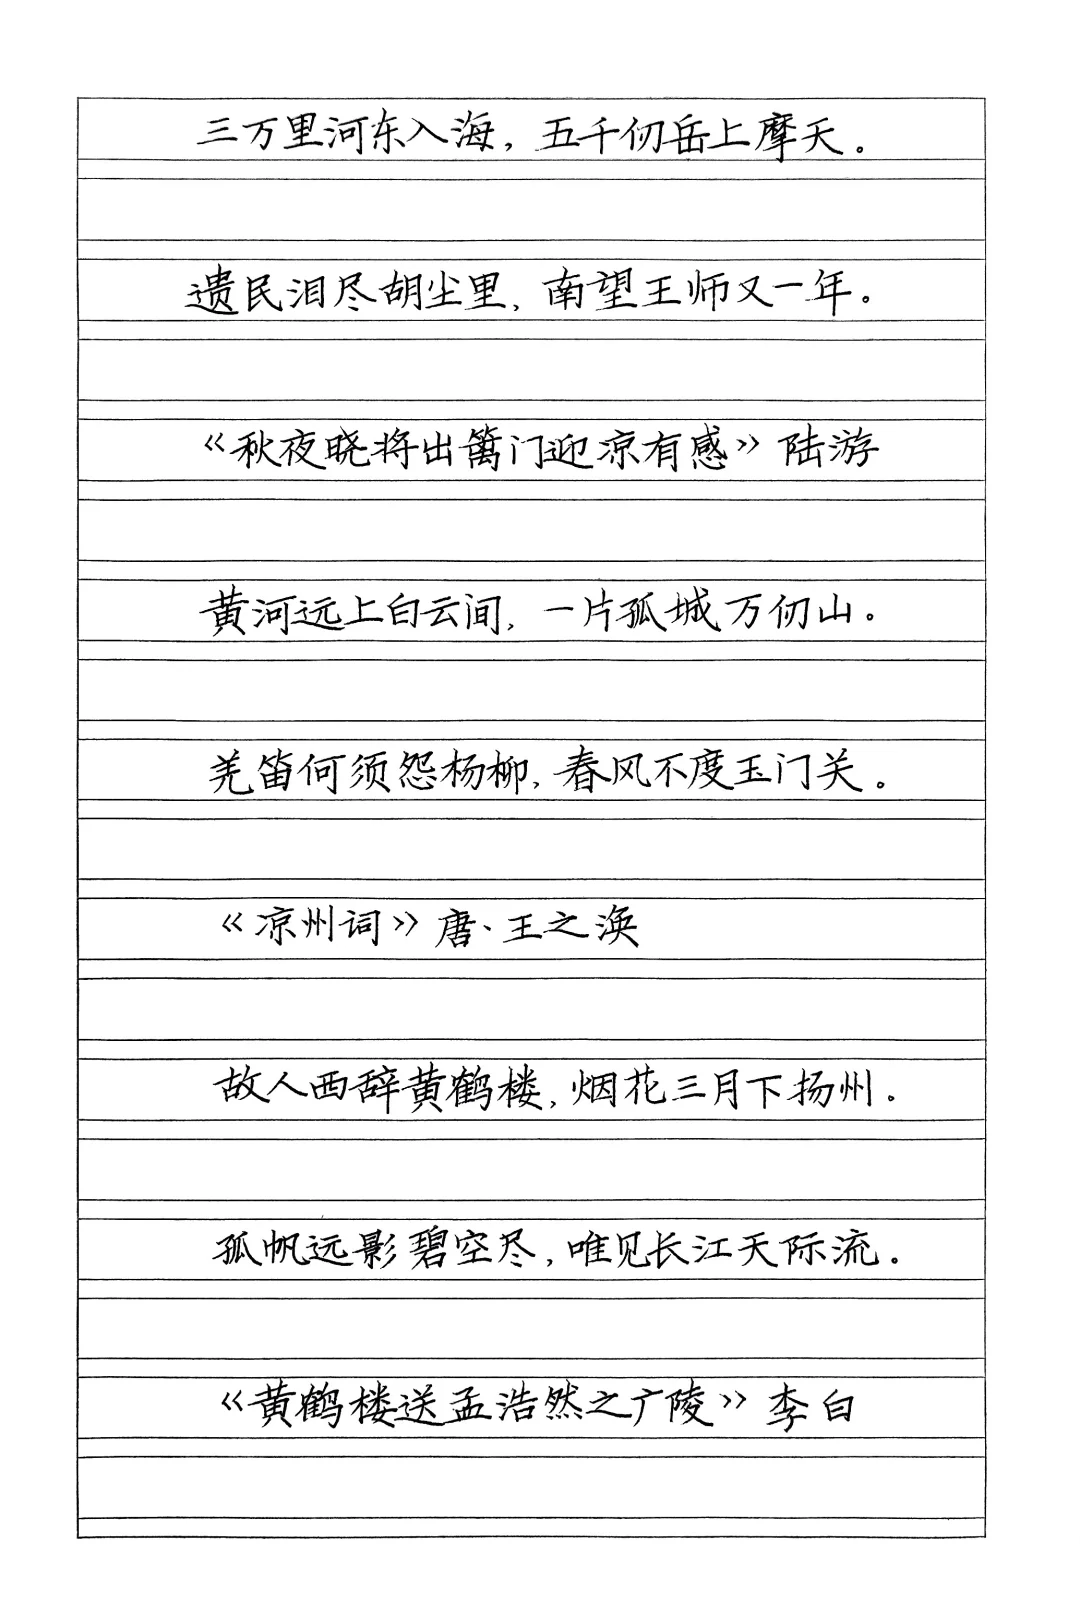 三万里河东入海，五千仞岳上摩天。
遗民泪尽胡尘里，南望王师又一年。
《秋夜晓将出篱门迎凉有感》陆游
黄河远上白云间，一片孤城万仞山。
羌笛何须怨杨柳，春风不度玉门关。
《凉州词》唐·王之涣
故人西辞黄鹤楼，烟花三月下扬州。
孤帆远影碧空尽，唯见长江天际流。
《黄鹤楼送孟浩然之广陵》李白